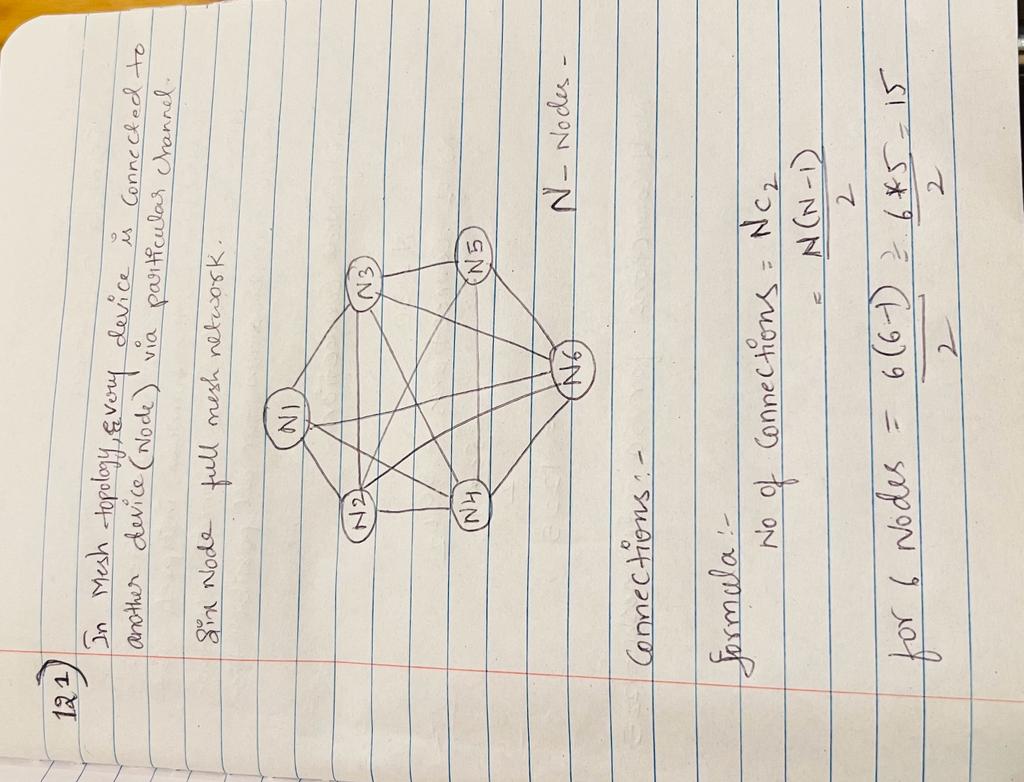 121)
In Mesh topology, Every device is connected to
another device (Node) via particular channel.
Six Node full mesh network.
N1
N2
N3
N4
N5
N6
N - Nodes -
Connections:-
Formula:-
No of Connections = NC2
= N(N-1)/2
for 6 Nodes = 6(6-1)/2 = 6*5/2 = 15